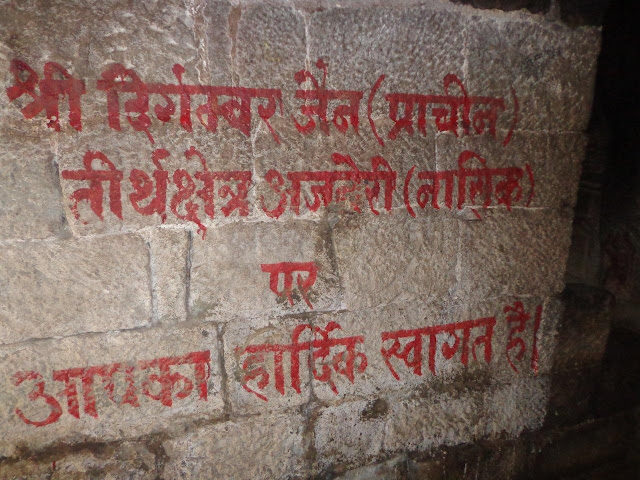 श्री दिगम्बर जैन (प्राचीन)
तीर्थक्षेत्र अजनेरी (नासिक)
पर
आपका हार्दिक स्वागत है।